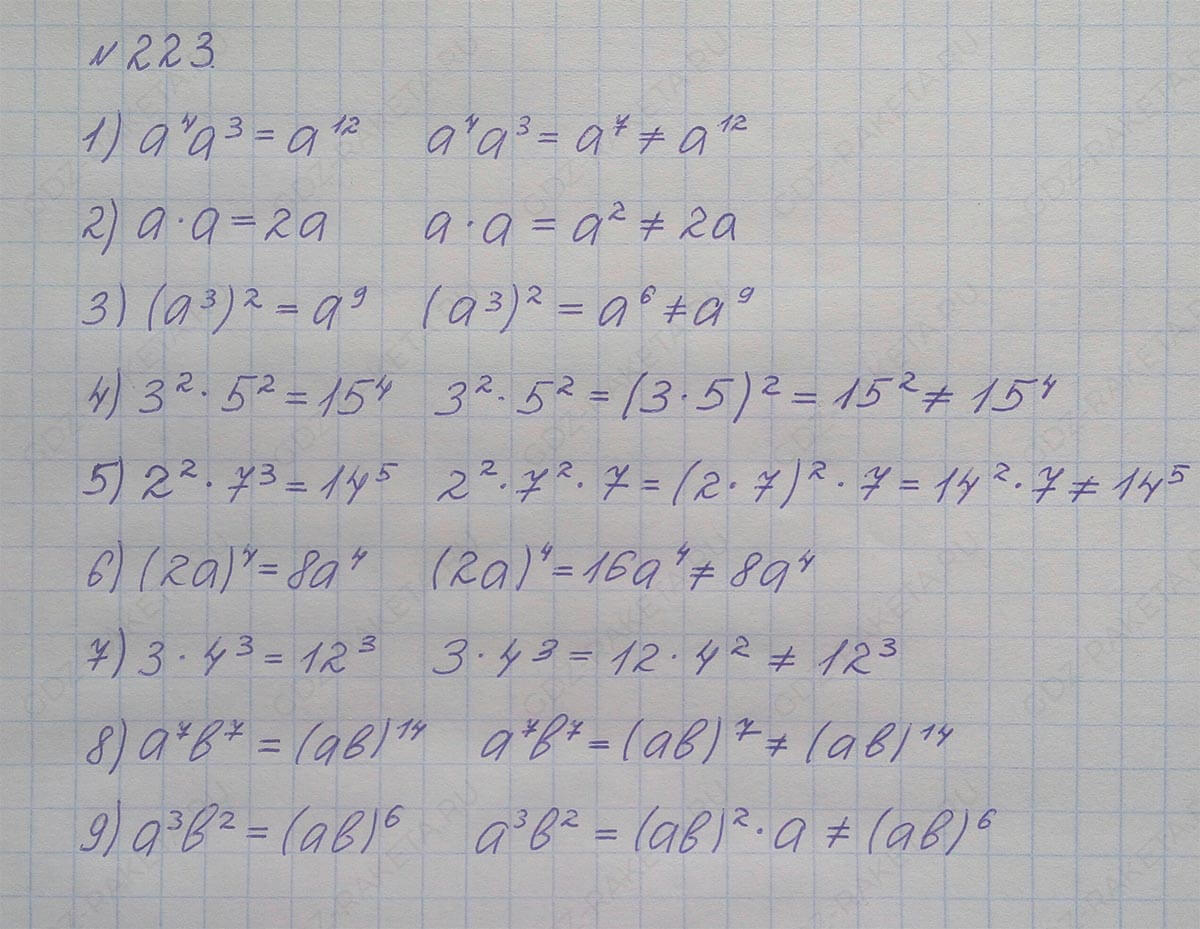 № 223.
1) a⁴a³ = a¹² a⁴a³ = a⁷ ≠ a¹²
2) a · a = 2a a · a = a² ≠ 2a
3) (a³)² = a⁹ (a³)² = a⁶ ≠ a⁹
4) 3² · 5² = 15⁴ 3² · 5² = (3 · 5)² = 15² ≠ 15⁴
5) 2² · 7³ = 14⁵ 2² · 7² · 7 = (2 · 7)² · 7 = 14² · 7 ≠ 14⁵
6) (2a)⁴ = 8a⁴ (2a)⁴ = 16a⁴ ≠ 8a⁴
7) 3 · 4³ = 12³ 3 · 4³ = 12 · 4² ≠ 12³
8) a⁷b⁷ = (ab)¹⁴ a⁷b⁷ = (ab)⁷ ≠ (ab)¹⁴
9) a³b² = (ab)⁶ a³b² = (ab)² · a ≠ (ab)⁶
GDZ-RAKETA.RU